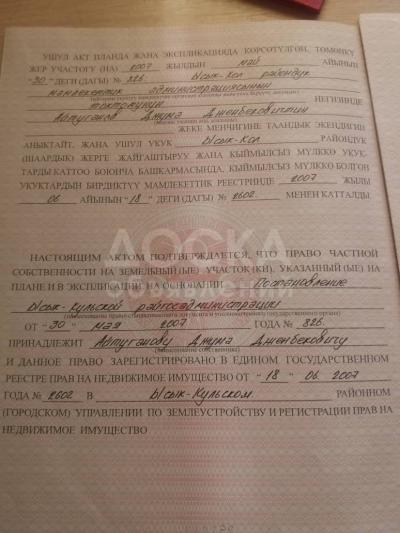 УШУЛ АКТ ПЛАНДА ЖАНА ЭКСПЛИКАЦИЯДА КӨРСӨТҮЛГӨН, ТӨМӨНКҮ
ЖЕР УЧАСТОГУ (НА) 2007 ЖЫЛДЫН май АЙЫНЫН
"30" ДЕГИ (ДАГЫ) № 826 Ысык-Көл райондук
мамлекеттик администрациясынын
токтомунун НЕГИЗИНДЕ
Абтуганов Джума Дженбековичтин
ЖЕКЕ МЕНЧИГИНЕ ТААНДЫК ЭКЕНДИГИН
АНЫКТАЙТ. ЖАНА УШУЛ УКУК Ысык-Көл РАЙОНДУК
(ШААРДЫК) ЖЕРГЕ ЖАЙГАШТЫРУУ ЖАНА КЫЙМЫЛСЫЗ МҮЛККӨ УКУК-
ТАРДЫ КАТТОО БОЮНЧА БАШКАРМАСЫНДА, КЫЙМЫЛСЫЗ МҮЛККӨ БОЛГОН
УКУКТАРДЫН БИРДИКТҮҮ МАМЛЕКЕТТИК РЕЕСТРИНДЕ 2007 ЖЫЛЫ
06 АЙИНЫН "18" ДЕГИ (ДАГЫ) № 2602 МЕНЕН КАТТАЛДЫ.
ДОСКА
ОБЪЯВЛЕНИЙ
НАСТОЯЩИМ АКТОМ ПОДТВЕРЖДАЕТСЯ, ЧТО ПРАВО ЧАСТНОЙ
СОБСТВЕННОСТИ НА ЗЕМЕЛЬНЫЙ (ЫЕ) УЧАСТОК (КИ), УКАЗАННЫЙ (ЫЕ) НА
ПЛАНЕ И В ЭКСПЛИКАЦИИ НА ОСНОВАНИИ Постановление
Ысык-Кульской райгосадминистрации
(наименование правоустанавливающего документа и уполномоченного государственного органа)
ОТ "30" мая 2007 ГОДА № 826
ПРИНАДЛЕЖИТ Абтуганову Джума Дженбековичу
(наименование собственника)
И ДАННОЕ ПРАВО ЗАРЕГИСТРИРОВАНО В ЕДИНОМ ГОСУДАРСТВЕННОМ
РЕЕСТРЕ ПРАВ НА НЕДВИЖИМОЕ ИМУЩЕСТВО ОТ "18" 06. 2007
ГОДА № 2602 В Ысык-Кульском РАЙОННОМ
(ГОРОДСКОМ) УПРАВЛЕНИИ ПО ЗЕМЛЕУСТРОЙСТВУ И РЕГИСТРАЦИИ ПРАВ НА
НЕДВИЖИМОЕ ИМУЩЕСТВО